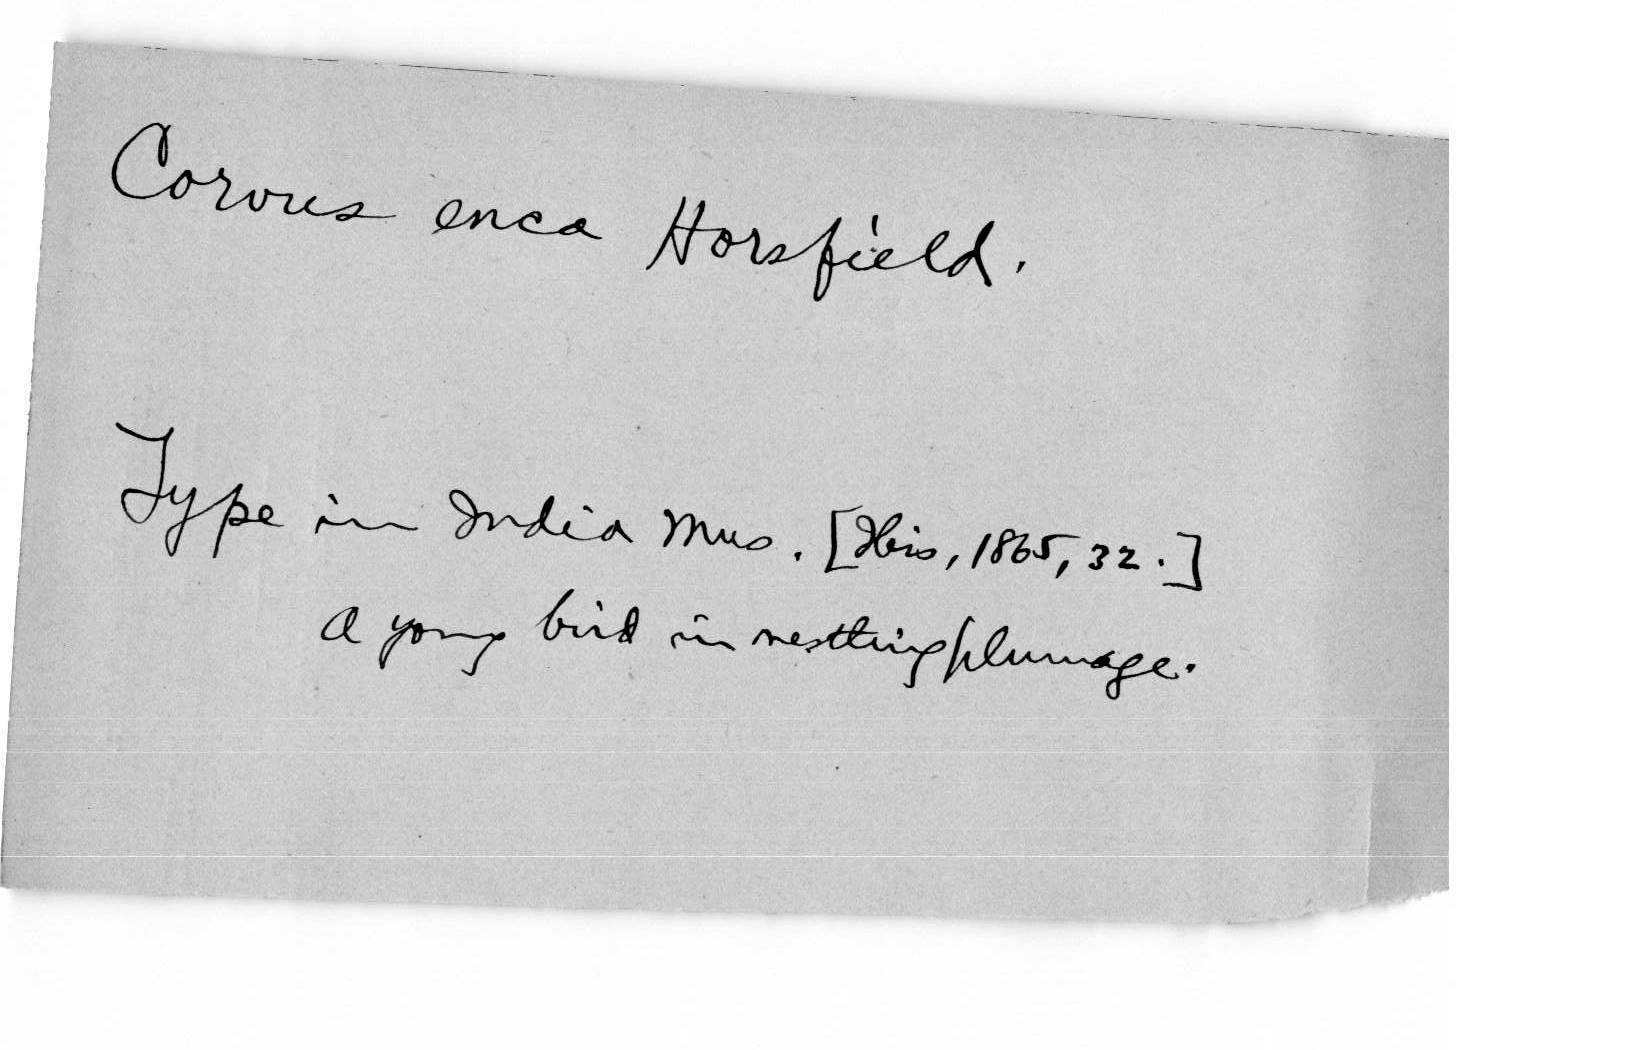 Corvus enca Horsfield.
Type in India Mus. [Ibis, 1865, 32.]
a young bird in nestling plumage.